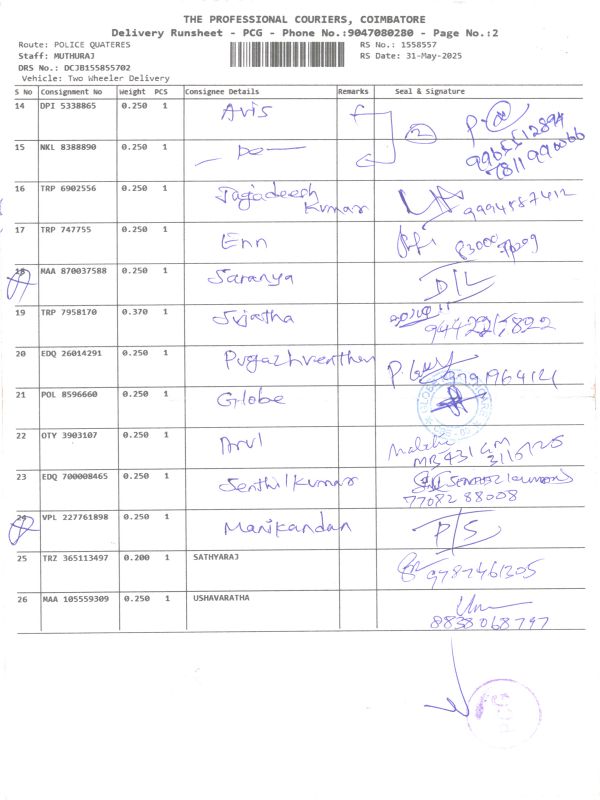 THE PROFESSIONAL COURIERS, COIMBATORE
Delivery Runsheet - PCG - Phone No.:9047080280 - Page No.:2
Route: POLICE QUATERES RS No.: 1558557
Staff: MUTHURAJ RS Date: 31-May-2025
DRS No.: DCJB155855702
Vehicle: Two Wheeler Delivery
S No Consignment No Weight PCS Consignee Details Remarks Seal & Signature
14 DPI 5338865 0.250 1 Avis 2
15 NKL 8388890 0.250 1
16 TRP 6902556 0.250 1 Jagadeesh Kumar
17 TRP 747755 0.250 1 Enn
18 MAA 870037588 0.250 1 Saranya D/L
19 TRP 7958170 0.370 1 Sujatha
20 EDQ 26014291 0.250 1 Pugazhventhan 9791964121
21 POL 8596660 0.250 1 Globe
22 OTY 3903107 0.250 1 Arul
23 EDQ 700008465 0.250 1 Senthilkumar 77082 88008
24 VPL 227761898 0.250 1 Manikandan P/S
25 TRZ 365113497 0.200 1 SATHYARAJ 9787461305
26 MAA 105559309 0.250 1 USHAVARATHA 8838068797
PCG